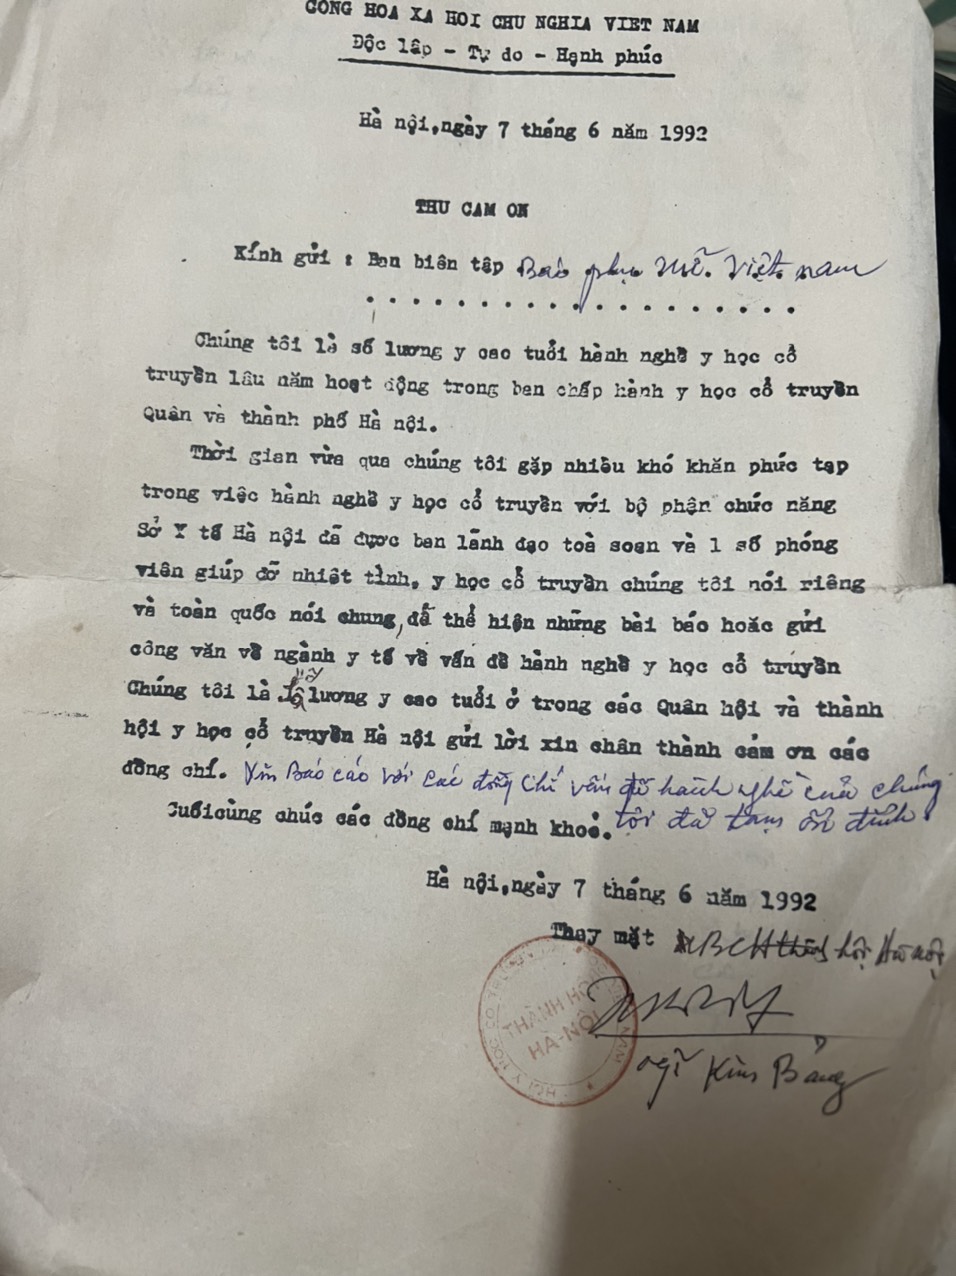 CONG HOA XA HOI CHU NGHIA VIET NAM
Độc lập - Tự do - Hạnh phúc
Hà nội, ngày 7 tháng 6 năm 1992
THU CAM ON
Kính gửi : Ban biên tập Báo phụ nữ Việt nam
Chúng tôi là số lương y cao tuổi hành nghề y học cổ
truyền lâu năm hoạt động trong ban chấp hành y học cổ truyền
Quân và thành phố Hà nội.
Thời gian vừa qua chúng tôi gặp nhiều khó khăn phức tạp
trong việc hành nghề y học cổ truyền với bộ phận chức năng
Sở Y tế Hà nội đã được ban lãnh đạo toà soạn và 1 số phóng
viên giúp đỡ nhiệt tình, y học cổ truyền chúng tôi nói riêng
và toàn quốc nói chung, đã thể hiện những bài báo hoặc gửi
công văn về ngành y tế về vấn đề hành nghề y học cổ truyền
Chúng tôi là lương y cao tuổi ở trong các Quân hội và thành
hội y học cổ truyền Hà nội gửi lời xin chân thành cảm ơn các
đồng chí. Xin Báo cáo với các đồng chí vấn đề hành nghề của chúng
Cuối cùng chúc các đồng chí mạnh khoẻ. tôi đã tạm ổn định
Hà nội, ngày 7 tháng 6 năm 1992
Thay mặt BCH thành hội Hà nội
THÀNH HỘI
HÀ-NỘI
Kim Bảng